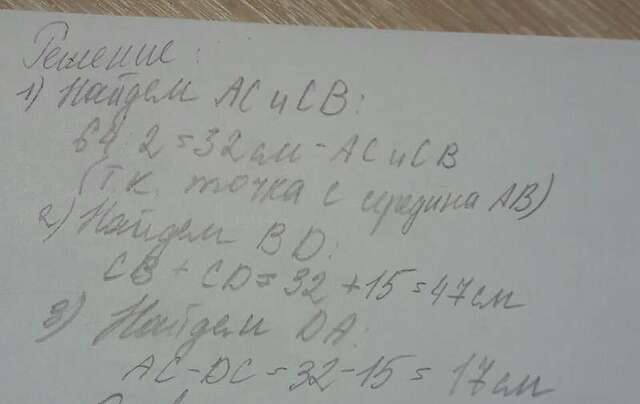 Решение:
1) Найдем AC и CB:
64:2=32см - AC и CB
(т.к. точка C середина AB)
2) Найдем BD:
CB + CD = 32 + 15 = 47см
3) Найдем DA:
AC - DC = 32 - 15 = 17см